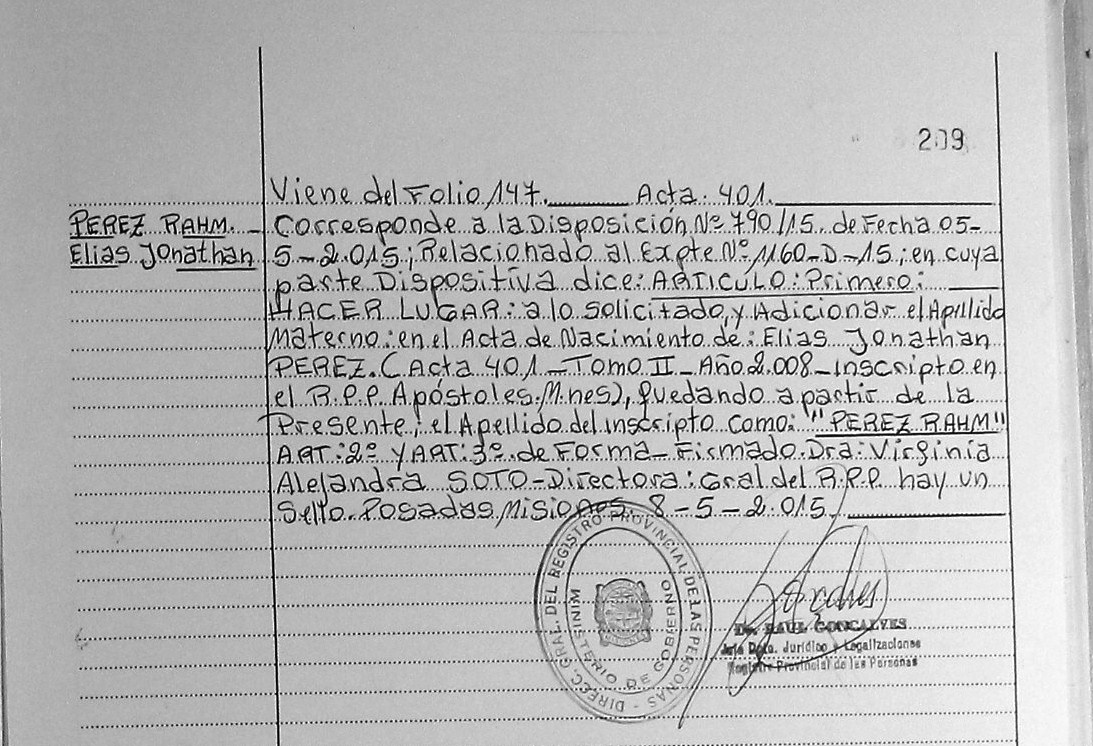 209
Viene del Folio 147. Acta. 401.
PEREZ RAHM.
Elias Jonathan
Corresponde a la Disposición Nº 790/15. de Fecha 05-
5-2.015; Relacionado al Expte Nº 1160-D-15; en cuya
parte Dispositiva dice: ARTICULO: Primero:
HACER LUGAR: a lo solicitado, y Adicionar el Apillido
Materno: en el Acta de Nacimiento de: Elias Jonathan
PEREZ. (Acta 401 - Tomo II - Año 2.008 - inscripto en
el R.P.P. Apóstoles. M.nes), quedando a partir de la
Presente; el Apellido del inscripto como: "PEREZ RAHM"
ART: 2º Y ART: 3º de Forma - Firmado. Dra: Virginia
Alejandra SOTO - Directora: Gral del R.P.P. hay un
Sello. Posadas, Misiones. 8-5-2.015.
DIREC. GRAL. DEL REGISTRO PROVINCIAL DE LAS PERSONAS -
MINISTERIO DE GOBIERNO
Dr. RAUL GONCALVES
Jefe Dpto. Jurídico y Legalizaciones
Registro Provincial de las Personas